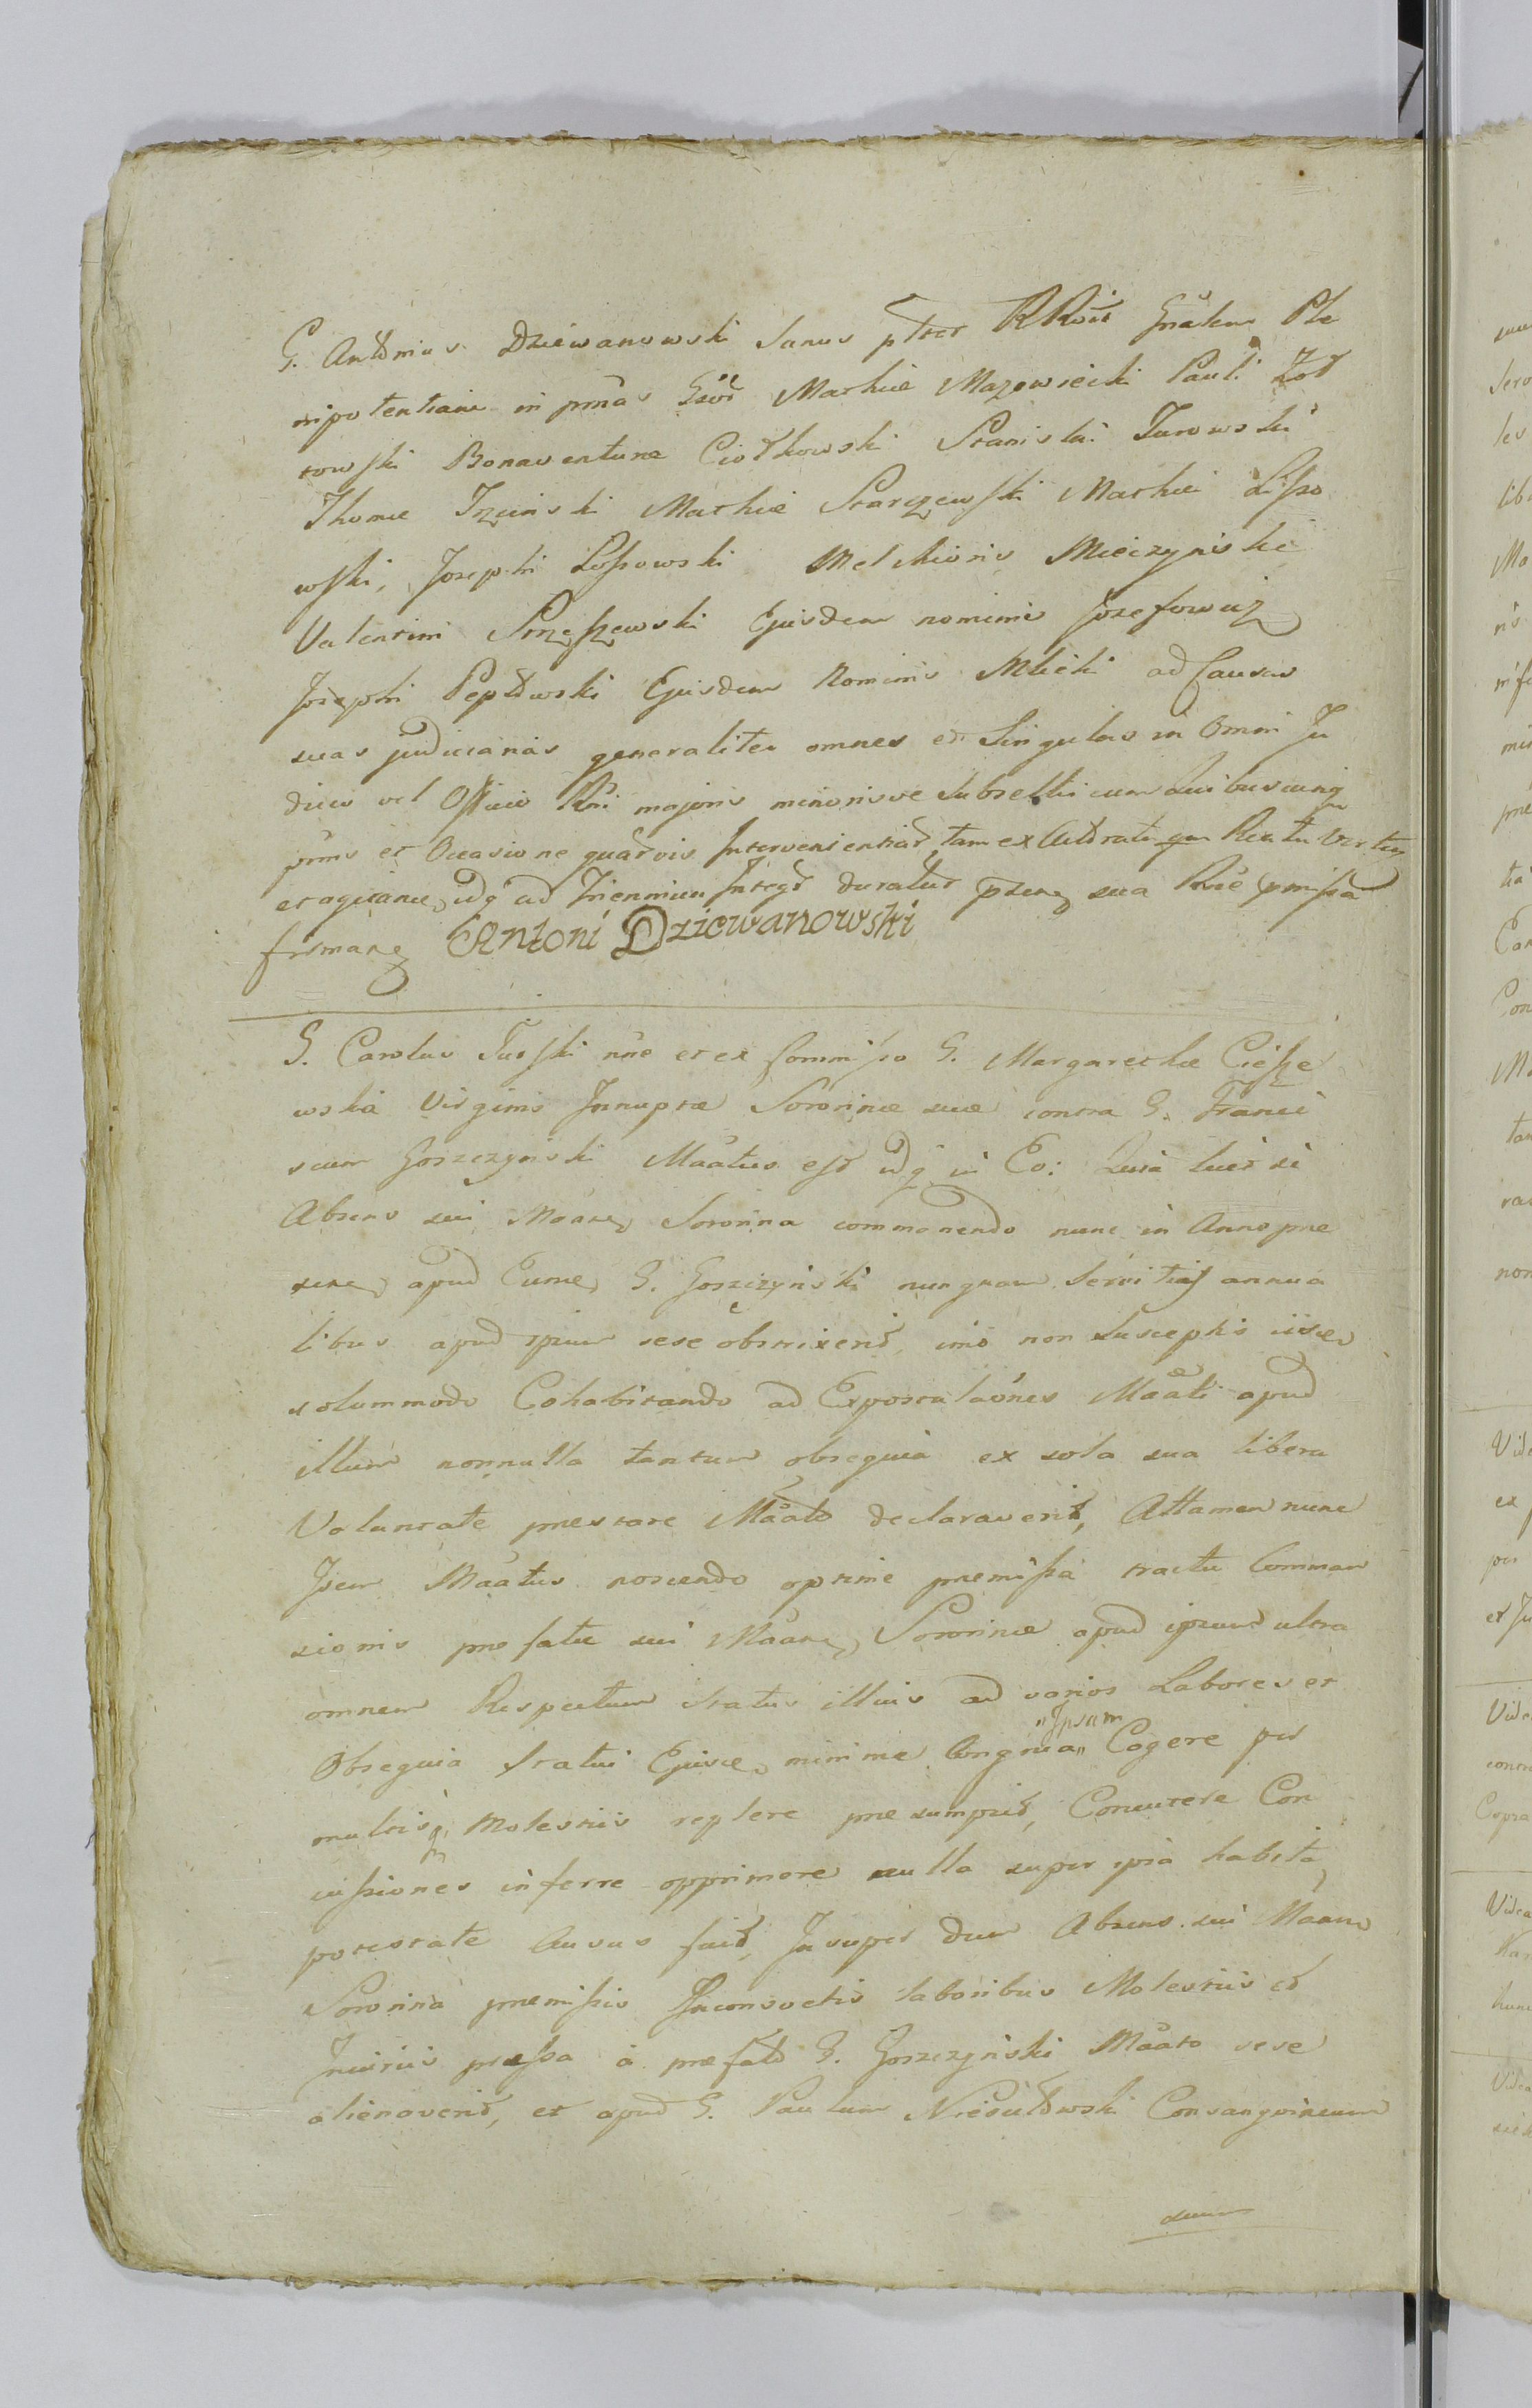 G. Antonius Dziewanowski Sanus ptter RRoīt Gnālem Ple
nipotentiam in pnnās Gsōr Mathiæ Mazowiecki Pauli Zot
towski Bonaventuræ Ciołkowski Stanislai Turowski
Thomæ Trzcinski Mathiæ Starczewski Mathiæ Lisso
wski, Josephi Lossowski Melchioris Mieczynski
Valentini Strzeszewski Ejusdem nominis Jozefowicz
Josephi Pepłowski Ejusdem Nominis Mlicki ad Causas
suas judiciarias generaliter omnes et Singulas in Omni Ju
dicio vel Officio Rni majoris minorisve Subsellii cum Quibuscunq
pnnis et Occasione quarvis Intervenientiar, tam ex Actoratu qm Reatu Verten
et agitan, idq ad Triennium Integr duratur pnsen sua Roē pmissa
firman Antoni Dziewanowski
G. Carolus Turski nīne et ex Commisso G. Margarethæ Ciesze
wska Virginis Innuptæ Sororinæ suæ contra G. Franci
scum Goszczynski Māatus est idq in Eo: Quia licet di
Absens sui Māan Sororina commanendo nunc in Anno præ
sen apud Eum G. Goszczynski nunquam Servitijs annua
libus apud ipsum sese obstrixerit, imo non Susceptis iisd
solummodo Cohabitando ad Expostulaōnes Māati apud
illum nonnulla tantum obsequia ex sola sua libera
Voluntate præstare Māato declaraverit, Attamen nunc
Idem Māatus noscendo optime præmissa tractu Comman
sionis præfatæ sui Māan Sororinæ apud ipsum ultra
omnem Respectum status illius ad varios Labores et
Obsequia Statui Ejusd minime Congrua "Ipsam" Cogere per
multisq Molestiis replere præsumpsit, Concutere Con
cussiones inferre opprimere nulla super ipsa habita
potestate Ausus fuit, Insuper dum Absens sui Māan
Sororina præmissis Inconsvetis laboribus Molestiis et
Injuriis pressa a præfato G. Goszczynski Māato sese
alienaverit, et apud G. Paulum Niesułowski Consangvineum
suum